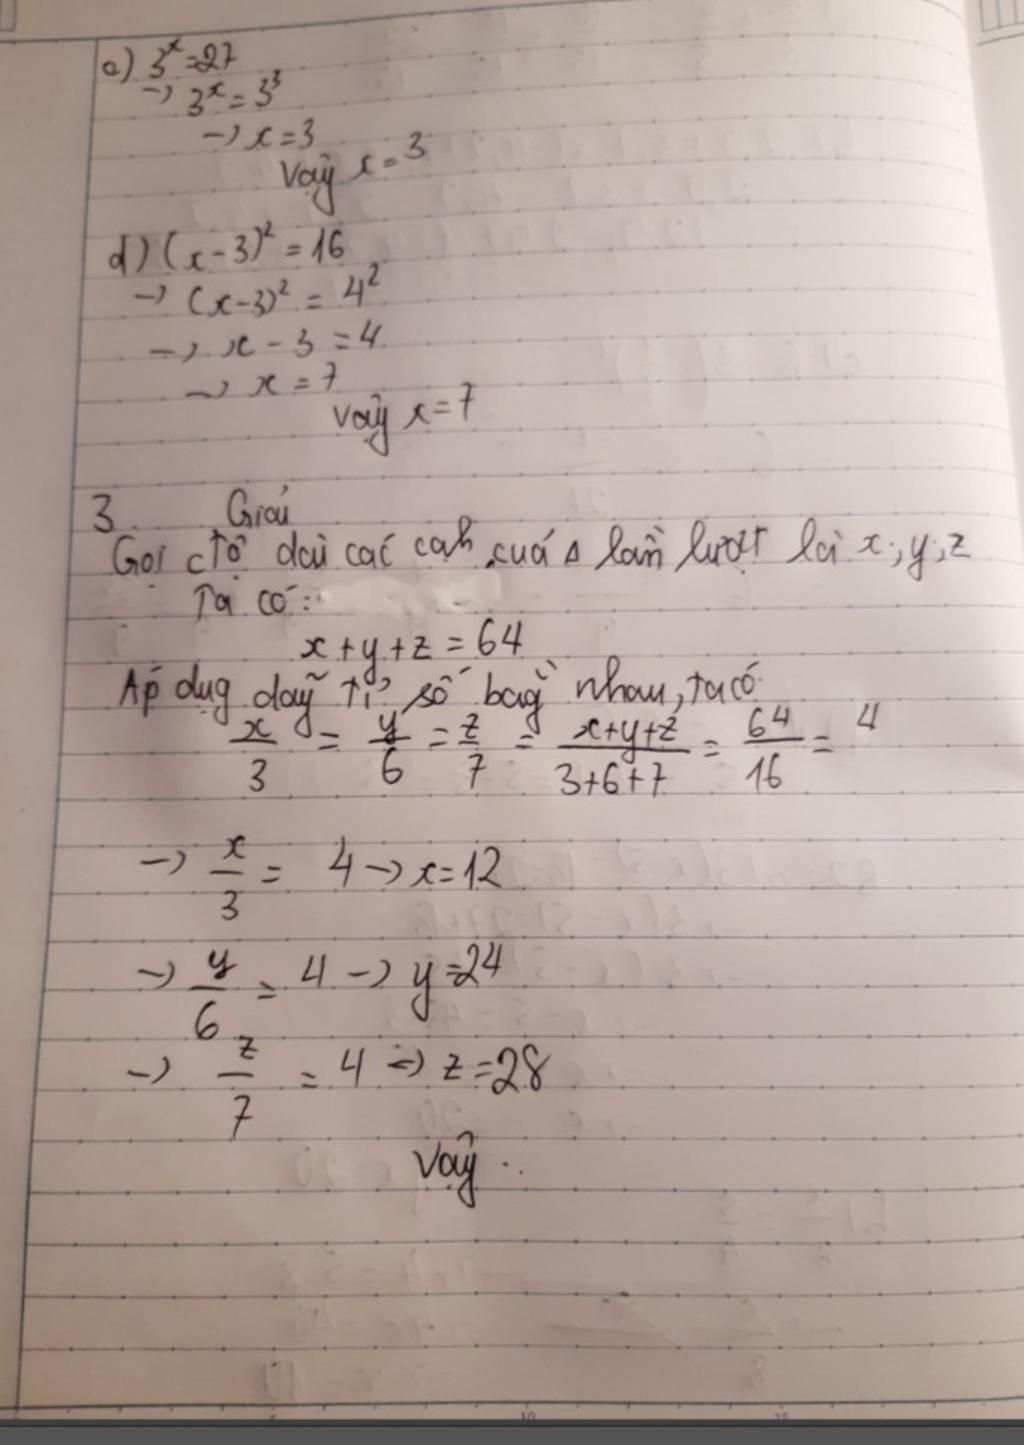 c) 3ˣ = 27
→ 3ˣ = 3³
→ x = 3
Vậy x = 3
d) (x - 3)² = 16
→ (x - 3)² = 4²
→ x - 3 = 4
→ x = 7
Vậy x = 7
3 Giải
Gọi độ dài các cạh của Δ lần lượt là x; y; z
Ta có:
x + y + z = 64
Áp dụg dãy tỉ số bằg nhau, ta có
x/3 = y/6 = z/7 = (x+y+z)/(3+6+7) = 64/16 = 4
→ x/3 = 4 → x = 12
→ y/6 = 4 → y = 24
→ z/7 = 4 → z = 28
Vậy ..